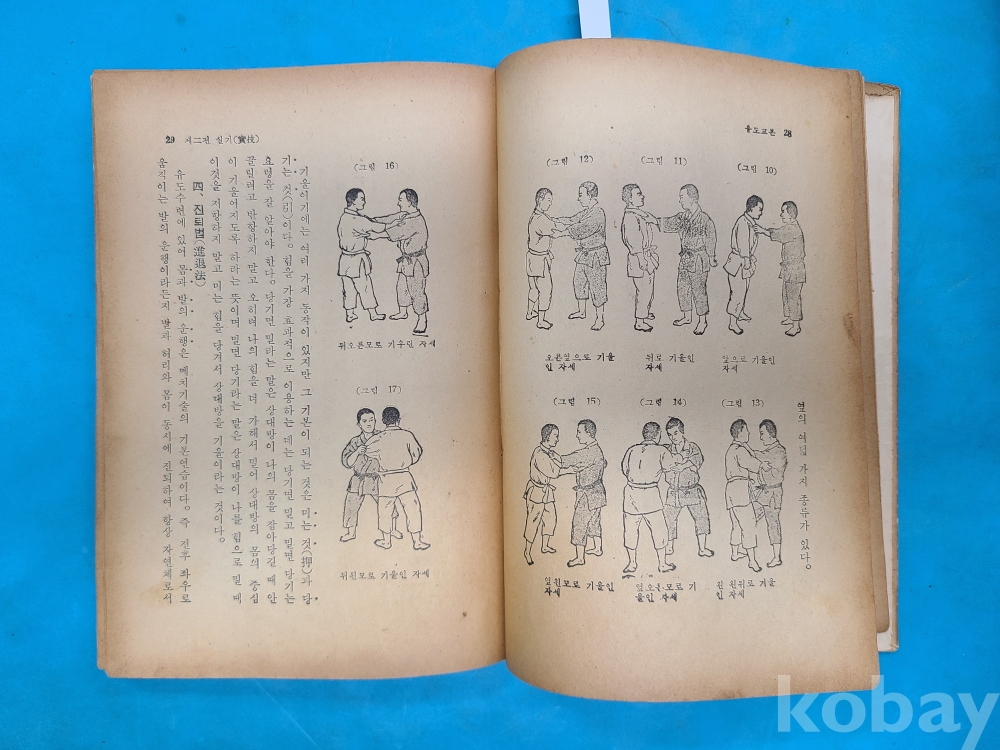 유도교본 28
옆의 여덟 가지 종류가 있다.
(그림 10)
앞으로 기울인
자세
(그림 11)
뒤로 기울인
자세
(그림 12)
오른앞으로 기울
인 자세
(그림 13)
왼뒤로 기울
인 자세
(그림 14)
옆오른모로 기
울인 자세
(그림 15)
앞왼모로 기울인
자세
29 제二편 실기(實技)
(그림 16)
뒤오른모로 기우린 자세
(그림 17)
뒤왼모로 기울인 자세
기울이기에는 여러 가지 동작이 있지만 그 기본이 되는 것은 미는 것(押)과 당
기는 것(引)이다. 힘을 가장 효과적으로 이용하는 데는 당기면 밀고 밀면 당기는
요령을 잘 알아야 한다. 당기면 밀라는 말은 상대방이 나의 몸을 잡아당길 때 안
끌릴려고 반항하지 말고 오히려 나의 힘을 더 가해서 밀어 상대방의 몸의 중심
이 기울어지도록 하라는 뜻이며 밀면 당기라는 말은 상대방이 나를 힘으로 밀 때
이것을 저항하지 말고 미는 힘을 당겨서 상대방을 기울이라는 것이다.
四、진퇴법(進退法)
유도수련에 있어 몸과 발의 운행은 메치기술의 기본연습이다. 즉 전후 좌우로
움직이는 발의 운행이라든지 발과 허리와 몸이 동시에 진퇴하여 항상 자연체로서
kobay